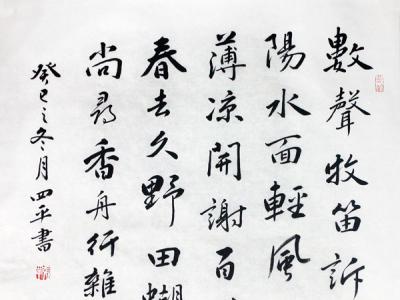 數聲牧笛訴
陽水面輕風
薄凉開謝百
春去久野田蝴
尚尋香舟行雜
癸巳之冬月四平書